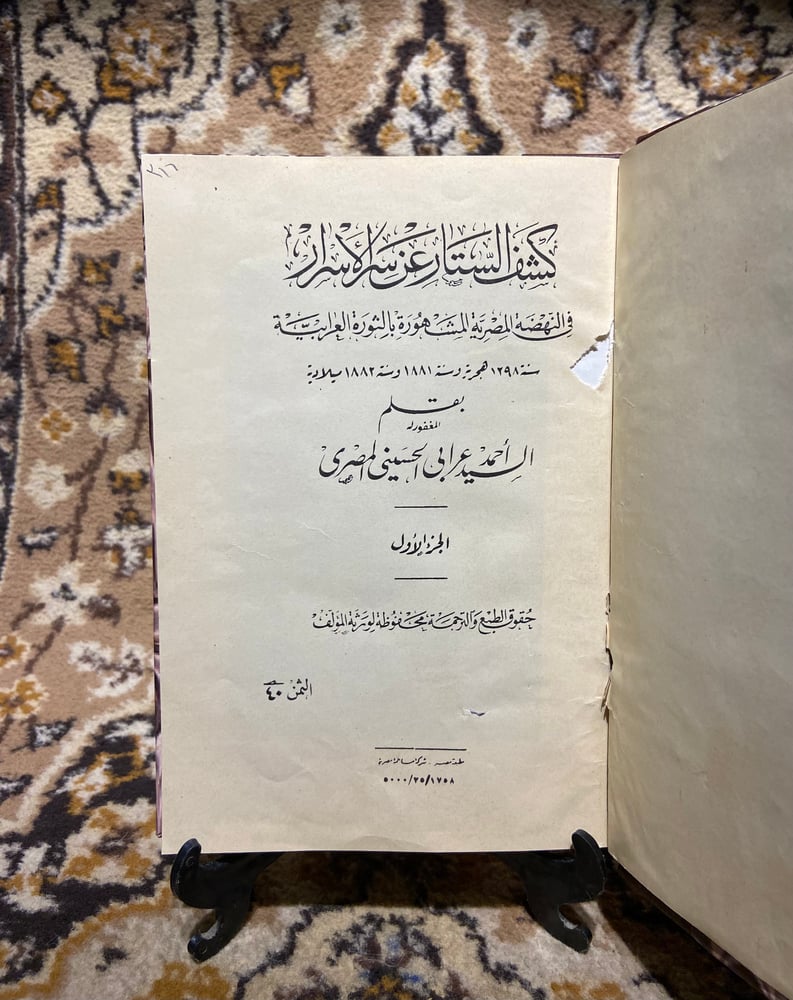 كشف الستار عن سر الأسرار
في النهضة المصرية المشهورة بالثورة العرابية
سنة ١٢٩٨ هجرية وسنة ١٨٨١ وسنة ١٨٨٢ ميلادية
بقلم
المغفور له
السيد أحمد عرابى الحسينى المصرى
الجزء الأول
حقوق الطبع والترجمة محفوظة لورثة المؤلف
الثمن ٤٠
مطبعة مصر . شركة مساهمة مصرية
٥٠٠٠/٢٥/١٧٥٨